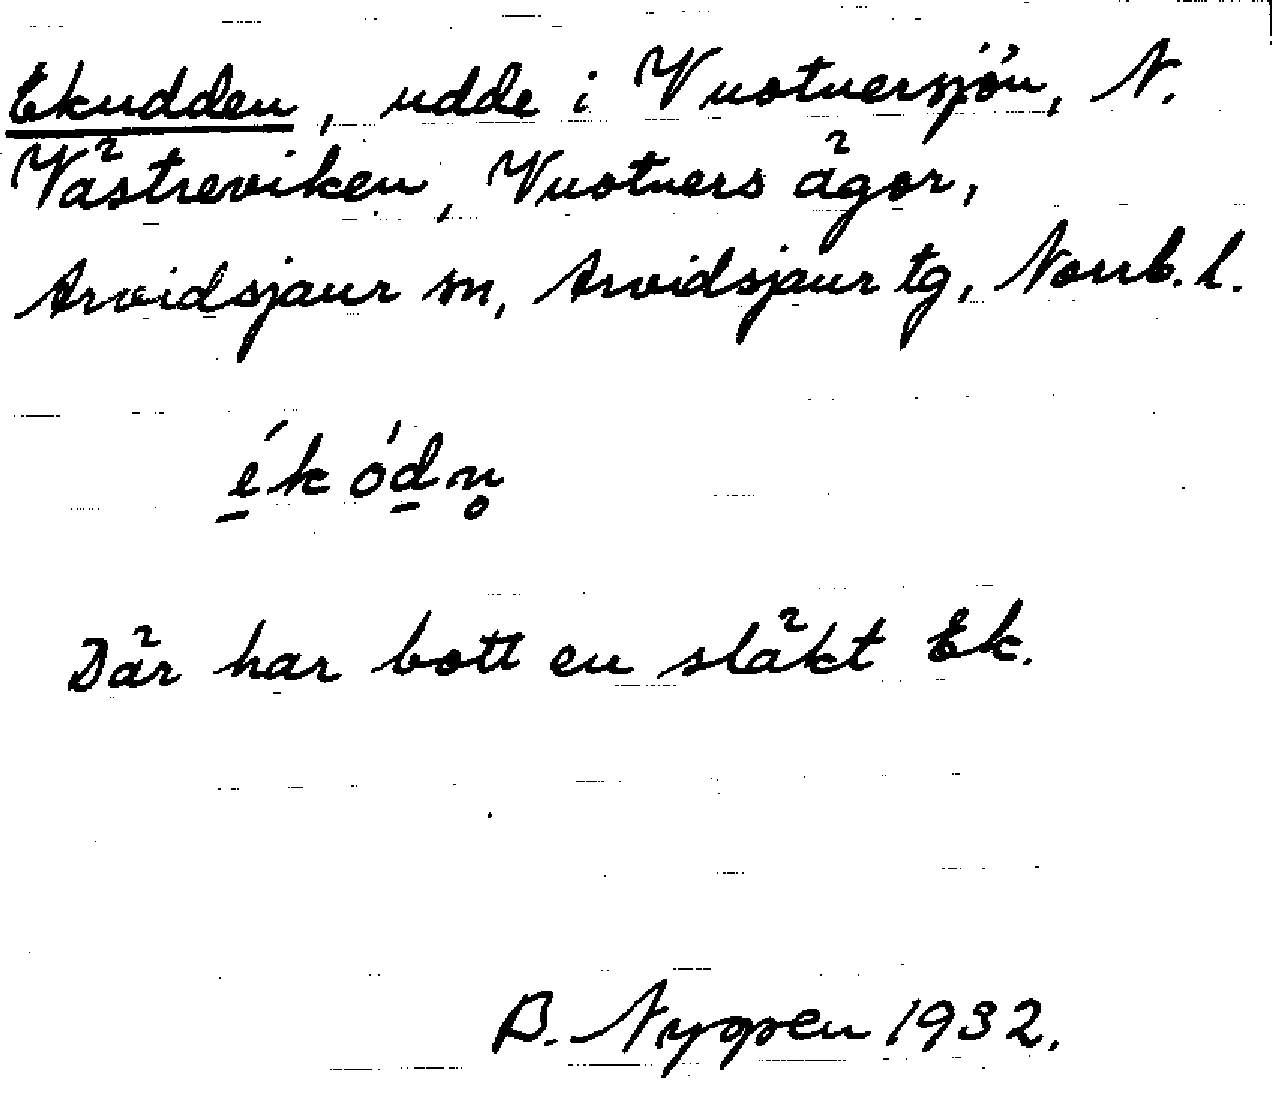 Ekudden, udde i Vuotnersjön, N.
Västreviken, Vuotners ägor,
Arvidsjaur sn, Arvidsjaur tg, Norrb. l.
é̱k óḏn̥
Där har bott en släkt Ek.
B. Nygren 1932.